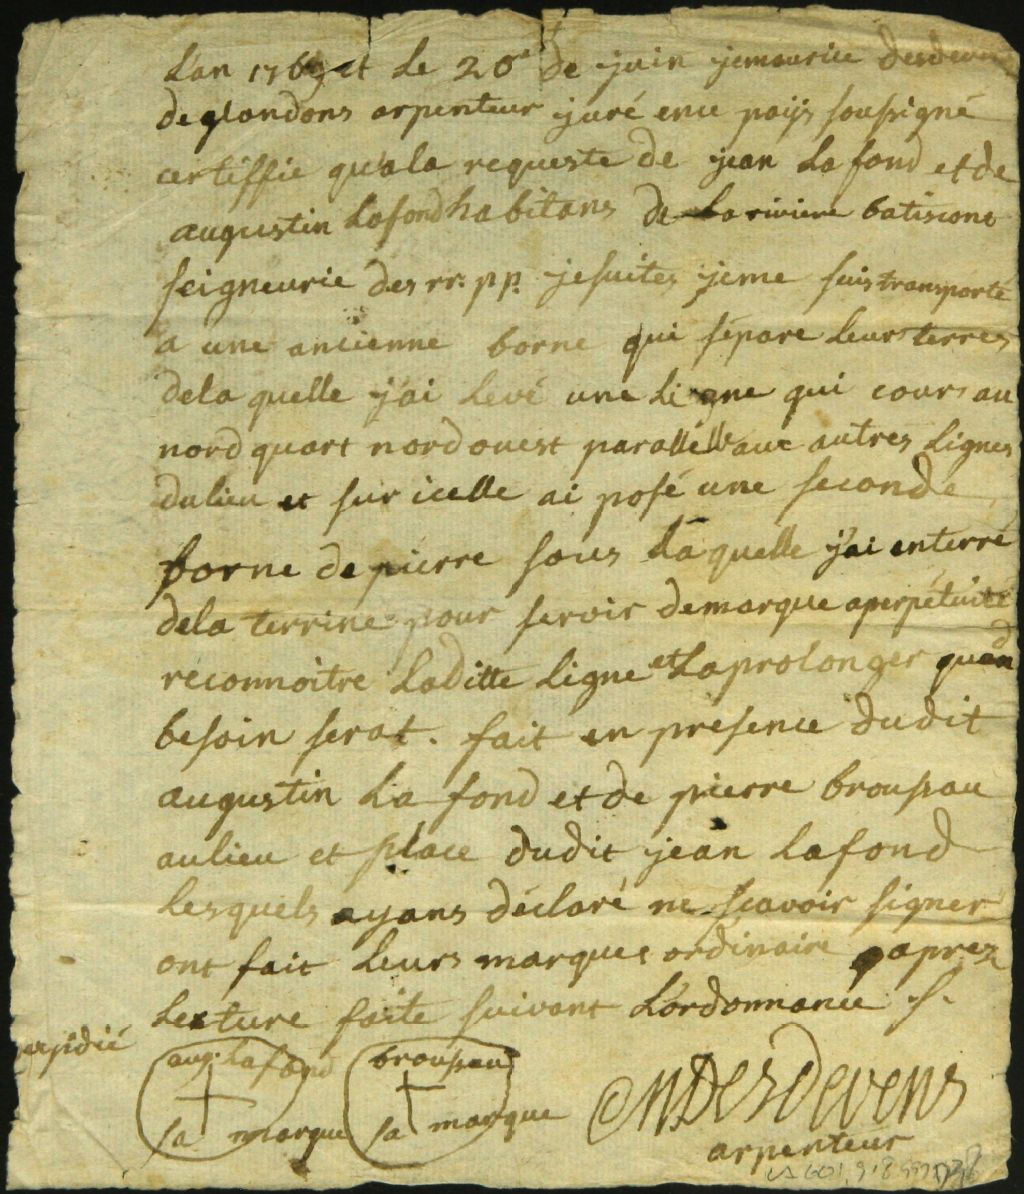 Lan 1769 et le 20e de juin jemaurice desdevens
de glandons arpenteur juré ence paÿs soussigné
certiffie qu'a la requeste de jean Lafond et de
augustin Lafond habitans de La riviere batiscant
seigneurie des rr: pp. jesuites jeme suis transporté
a une ancienne borne qui sépare leurs terres
dela quelle j'ai levé une Ligne qui cours au
nord quart nord ouest parallélle aux autres Lignes
dulieu et sur icelle ai posé une seconde
borne de pierre sous Laquelle j'ai enterré
dela terrine pour servir demarque aperpétuité
reconnoitre Laditte Ligne et Laprolonger quand
besoin serat. fait en presence dudit
augustin La fond et de pierre broussau
aulieu et place dudit jean Lafond
Lesquels ayans déclaré ne scavoir signer
ont fait leurs marques ordinaire aprez
Lecture faite suivant L'ordonnance /.
expidié
aug: Lafond broussau
sa marque sa marque
MDesdevens
arpenteur